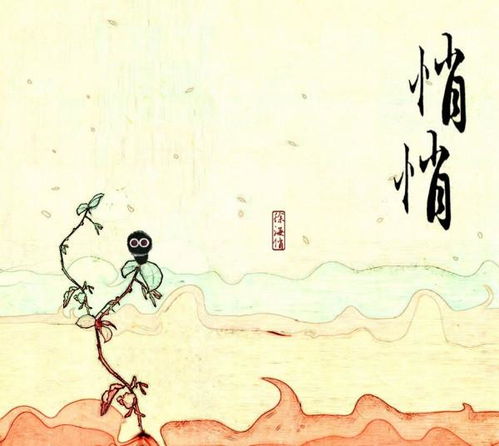 悄悄
徐海俏